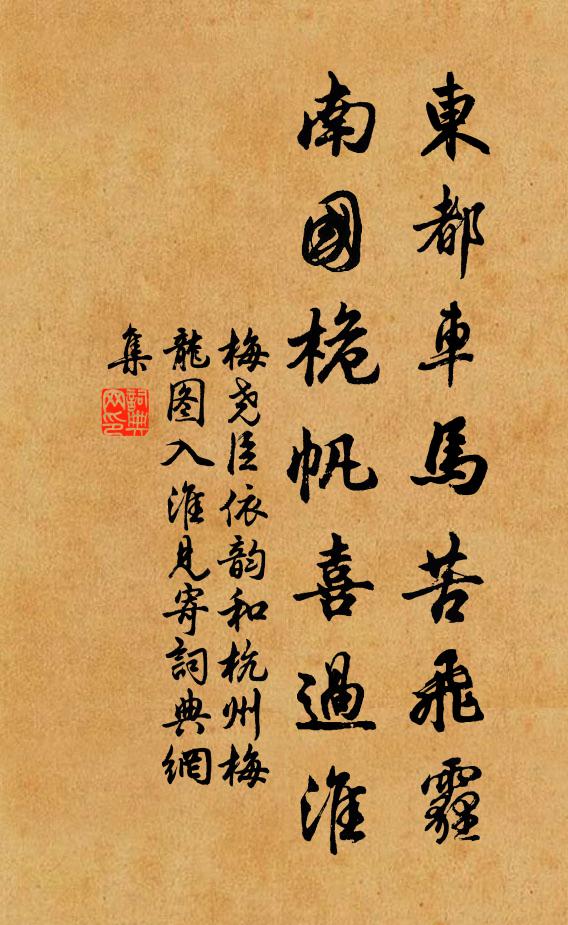 東都車馬苦飛霾
南國桅帆喜過淮
梅尧臣依韵和杭州梅
龍图入淮見寄詞典網
集
詞典
网印